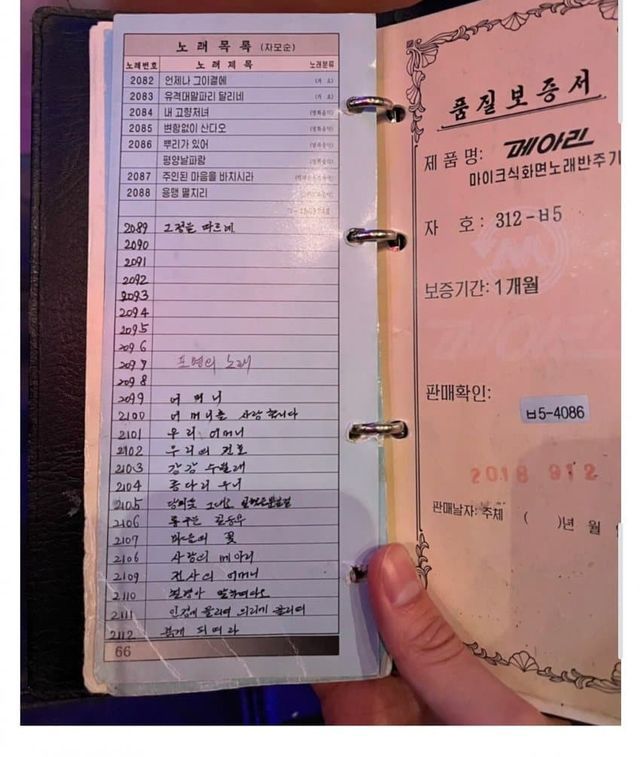 노래목록 (자모순)
노래번호 노래제목 노래분류
2082 언제나 그이곁에
2083 유격대말파리 달리네
2084 내 고향처녀
2085 변함없이 산다오
2086 뿌리가 있어
평양날파람
2087 주인된 마음을 바치시라
2088 용맹 떨치라
2089 그 길을 따르네
2090
2091
2092
2093
2094
2095
2096
2097 포연의 노래
2098
2099 어머니
2100 어머니를 사랑합니다
2101 우리 어머니
2102
2103 강강수월래
2104 종다리 우니
2105
2106
2107 마음의 꽃
2106 사랑의 메아리
2109 전사의 어머니
2110
2111 인정에 울리며 의리에 울리며
2112 붉게 피여라
66
품질보증서
제품명: 메아리
마이크식화면노래반주기
자 호: 312-ㅂ5
보증기간: 1개월
판매확인:
ㅂ5-4086
2018 9 1 2
판매날자: 주체 ( )년 월